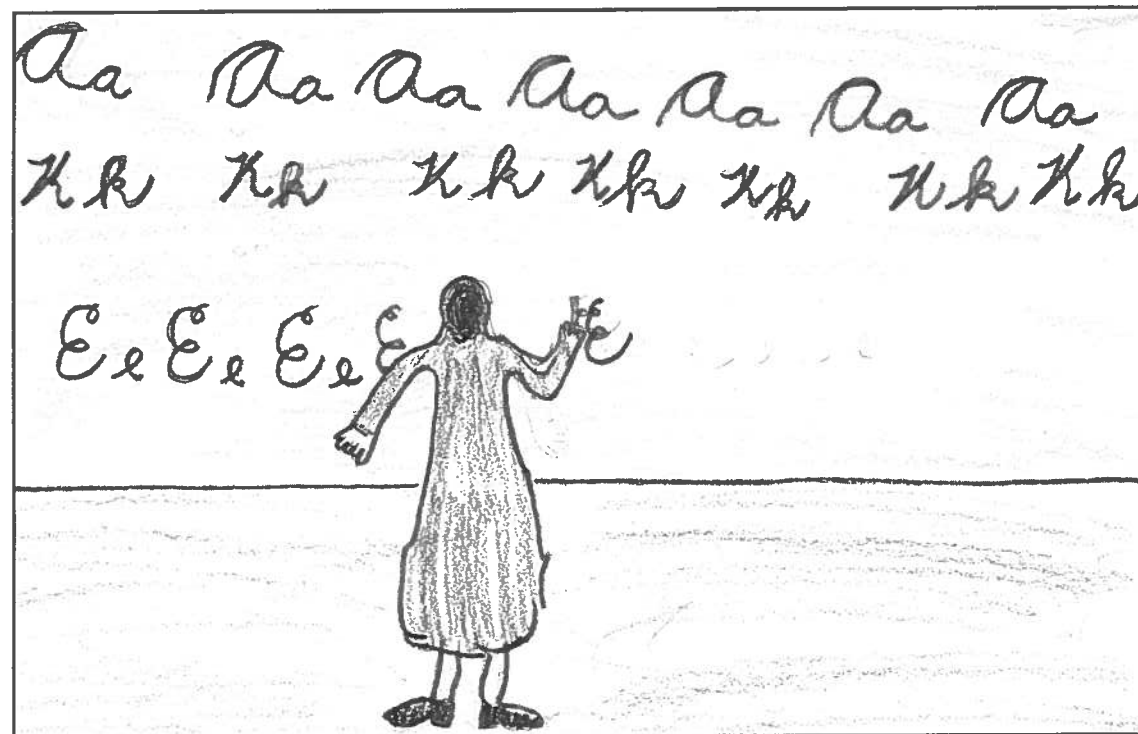 Aa Aa Aa Aa Aa Aa Aa
Kk Kk Kk Kk Kk Kk Kk
Ee Ee Ee E E